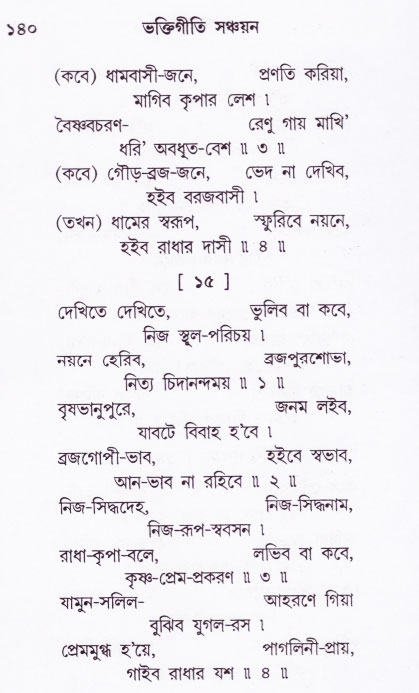 ১৪০ ভক্তিগীতি সঞ্চয়ন
(কবে) ধামবাসী-জনে, প্রণতি করিয়া,
মাগিব কৃপার লেশ ।
বৈষ্ণবচরণ- রেণু গায় মাখি’
ধরি’ অবধূত-বেশ ॥ ৩ ॥
(কবে) গৌড়-ব্রজ-জনে, ভেদ না দেখিব,
হইব বরজবাসী ।
(তখন) ধামের স্বরূপ, স্ফুরিবে নয়নে,
হইব রাধার দাসী ॥ ৪ ॥
[ ১৫ ]
দেখিতে দেখিতে, ভুলিব বা কবে,
নিজ স্থূল-পরিচয় ।
নয়নে হেরিব, ব্রজপুরশোভা,
নিত্য চিদানন্দময় ॥ ১ ॥
বৃষভানুপুরে, জনম লইব,
যাবটে বিবাহ হ’বে ।
ব্রজগোপী-ভাব, হইবে স্বভাব,
আন-ভাব না রহিবে ॥ ২ ॥
নিজ-সিদ্ধদেহ, নিজ-সিদ্ধনাম,
নিজ-রূপ-স্ববসন ।
রাধা-কৃপা-বলে, লভিব বা কবে,
কৃষ্ণ-প্রেম-প্রকরণ ॥ ৩ ॥
যামুন-সলিল- আহরণে গিয়া
বুঝিব যুগল-রস ।
প্রেমমুগ্ধ হ’য়ে, পাগলিনী-প্রায়,
গাইব রাধার যশ ॥ ৪ ॥